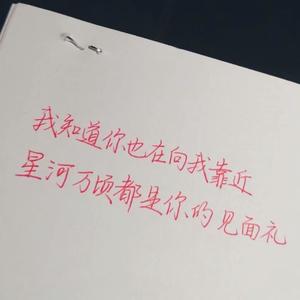 我知道你也在向我靠近
星河万顷都是你的见面礼